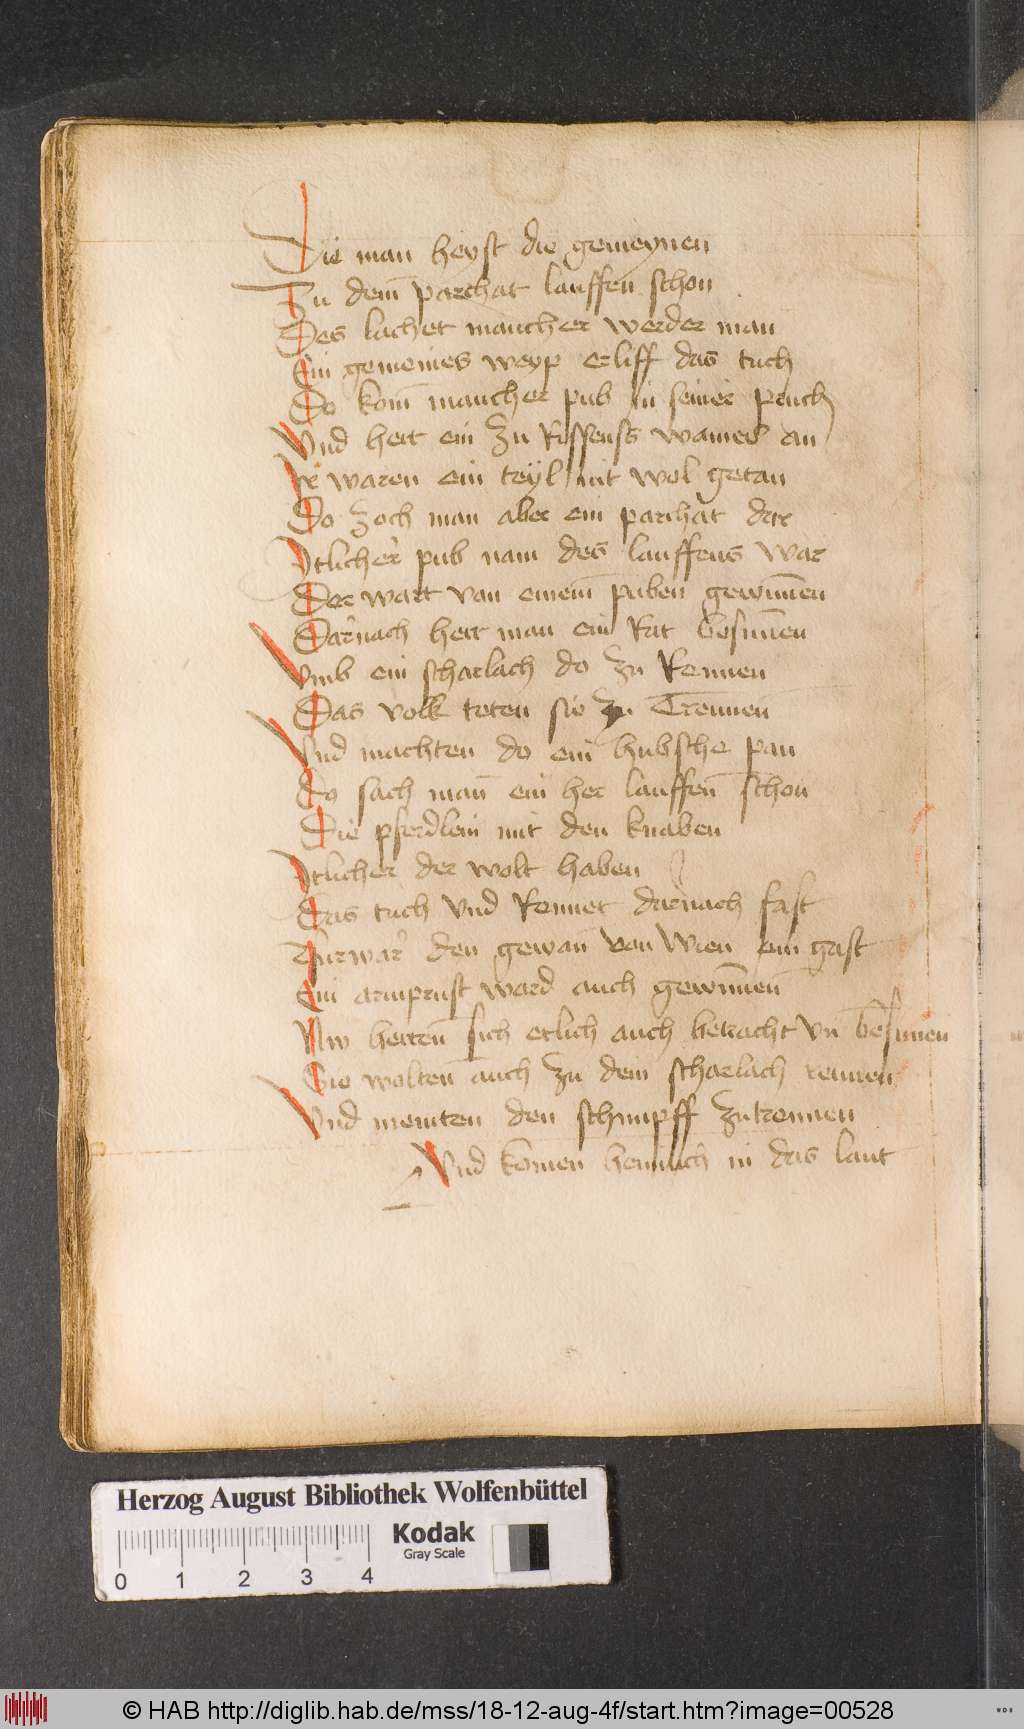 Die man heyst die gemeynen
Zu dem̄ parchat lauffen schon
Des lachet mancher werder man
Ein gemeines weyp erliff das tuch
Do kom̄ mancher pub in seiner pruch
Vnd hett ein zu wames an
Ir waren ein teyl nit wol getan
Do zoch man aber ein parchat dar
Itlicher pub nam des lauffens war
Der wart von einem puben gewūnen
Darnach hett man ein Rat besūnen
Vmb ein scharlach do zu Rennen
Das volk teten sie zu Trennen
Vnd machten do ein hubsche pan
Do sach man̄ ein her lauffen̄ schon
Die pferdlein mit den knaben
Itlicher der wolt haben
Das tuch vnd Rennet darnach fast
Furwar den gewan von Wien ein gast
Ein armprust ward auch gewūnen
Nw hetten̄ sich etlich auch betracht vn̄ besūnen
Sie wolten̄ auch zu dem scharlach rennen
Vnd meinten den schimpff zutrennen
Vnd komen heimlich in das lant
Herzog August Bibliothek Wolfenbüttel
Kodak
Gray Scale
0 1 2 3 4
© HAB http://diglib.hab.de/mss/18-12-aug-4f/start.htm?image=00528